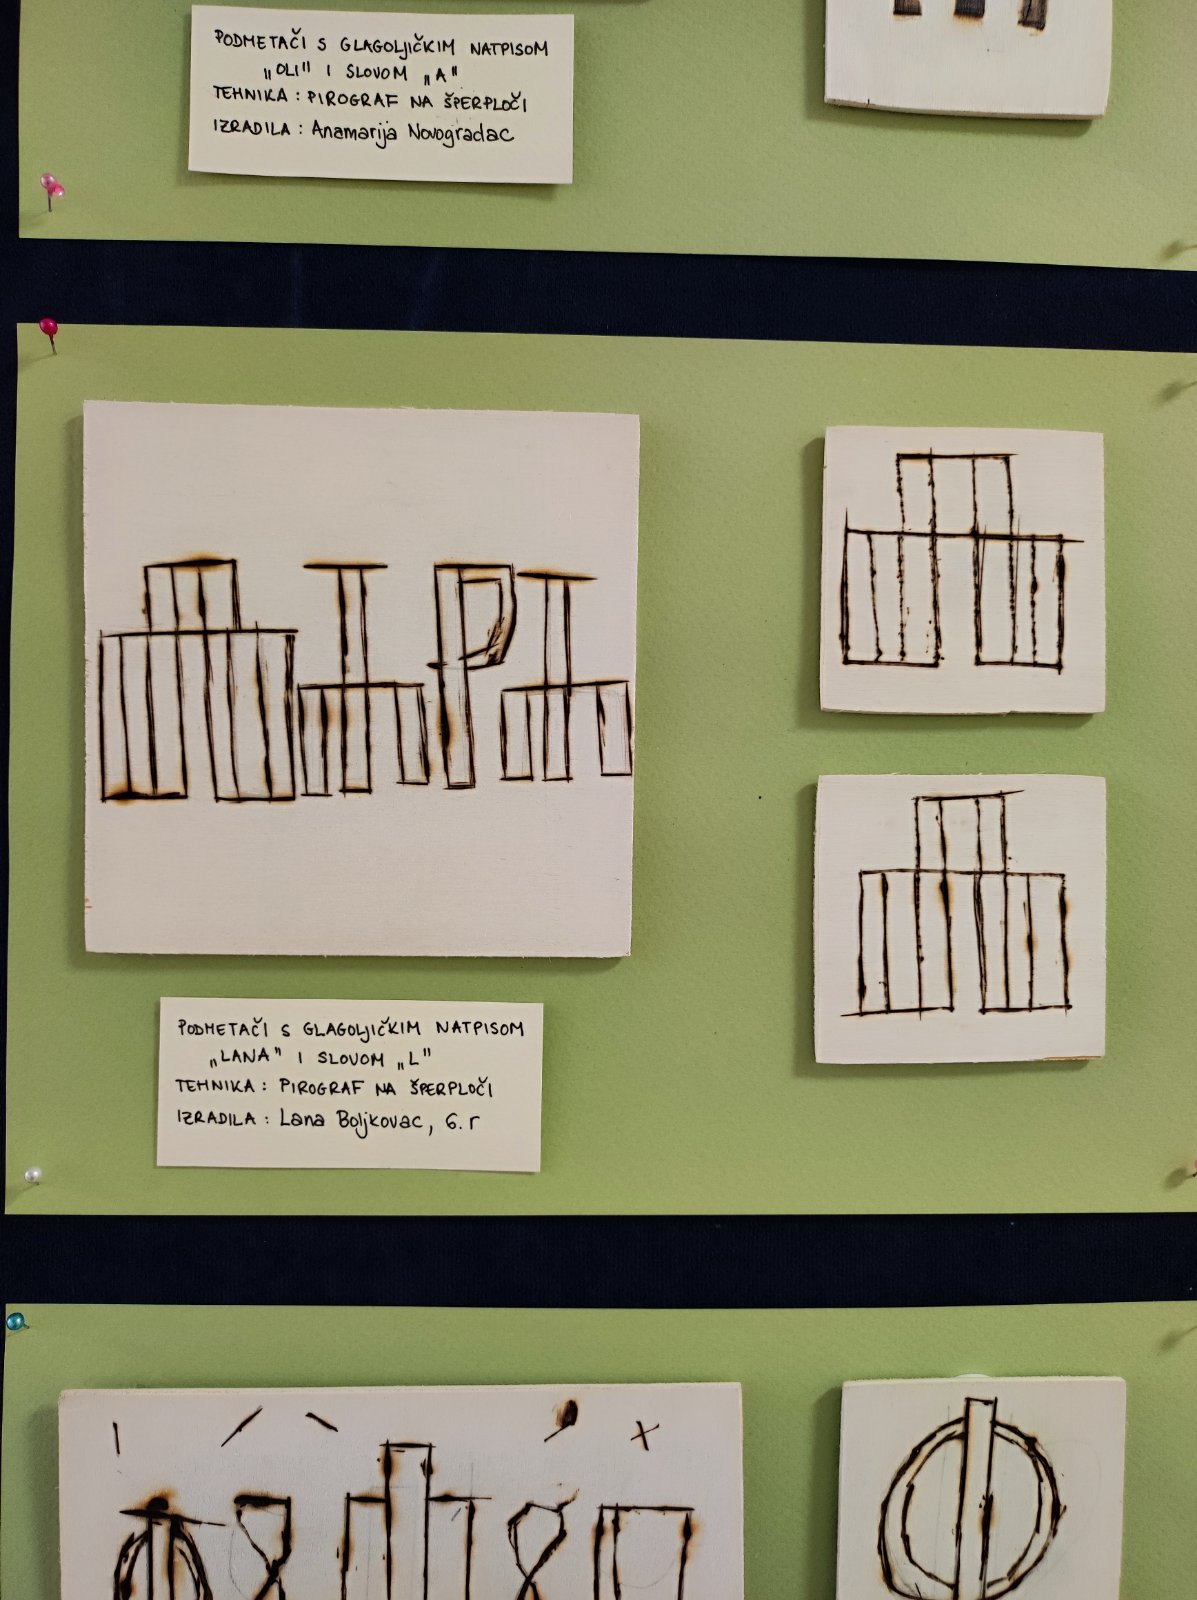 PODMETAČI S GLAGOLJIČKIM NATPISOM
„OLI" I SLOVOM „A"
TEHNIKA: PIROGRAF NA ŠPERPLOČI
IZRADILA: Anamarija Novogradac
ⰾⰰⱀⰰ
ⰾ
ⰾ
PODMETAČI S GLAGOLJIČKIM NATPISOM
„LANA" I SLOVOM „L"
TEHNIKA: PIROGRAF NA ŠPERPLOČI
IZRADILA: Lana Boljkovac, 6. r